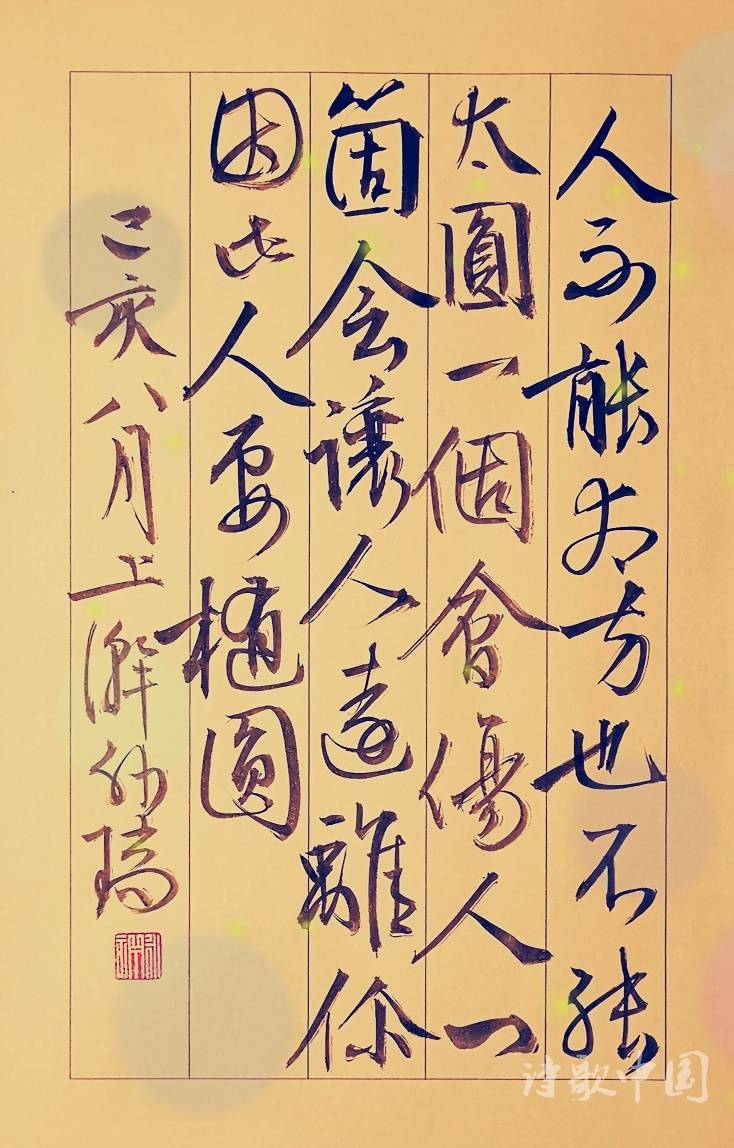 人不能太方也不能
太圓一個會傷人一
箇会讓人遠離你
因此人要橢圓
己亥八月上澣瑞
诗歌中国